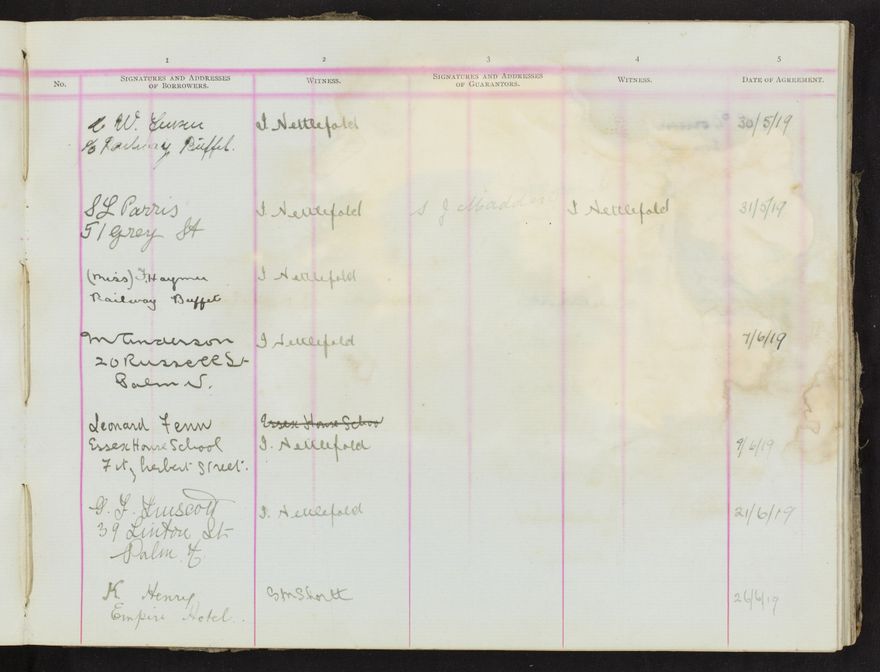 1 2 3 4 5
No. SIGNATURES AND ADDRESSES OF BORROWERS. WITNESS. SIGNATURES AND ADDRESSES OF GUARANTORS. WITNESS. DATE OF AGREEMENT.
W. I Nettlefold 30/5/19
c/o Railway Buffet.
S L Parris I Nettlefold S J Madden I Nettlefold 31/5/19
51 Grey St
(Miss) Haymes I Nettlefold
Railway Buffet
M Anderson I Nettlefold 7/6/19
20 Russell St
Palm N.
Leonard Fenn Essex House School
Essex House School I. Nettlefold 9/6/19
Fitzherbert Street.
G. F. Linscott I. Nettlefold 21/6/19
39 Linton St
Palm. N
K Henry S M Shortt 26/6/19
Empire Hotel.